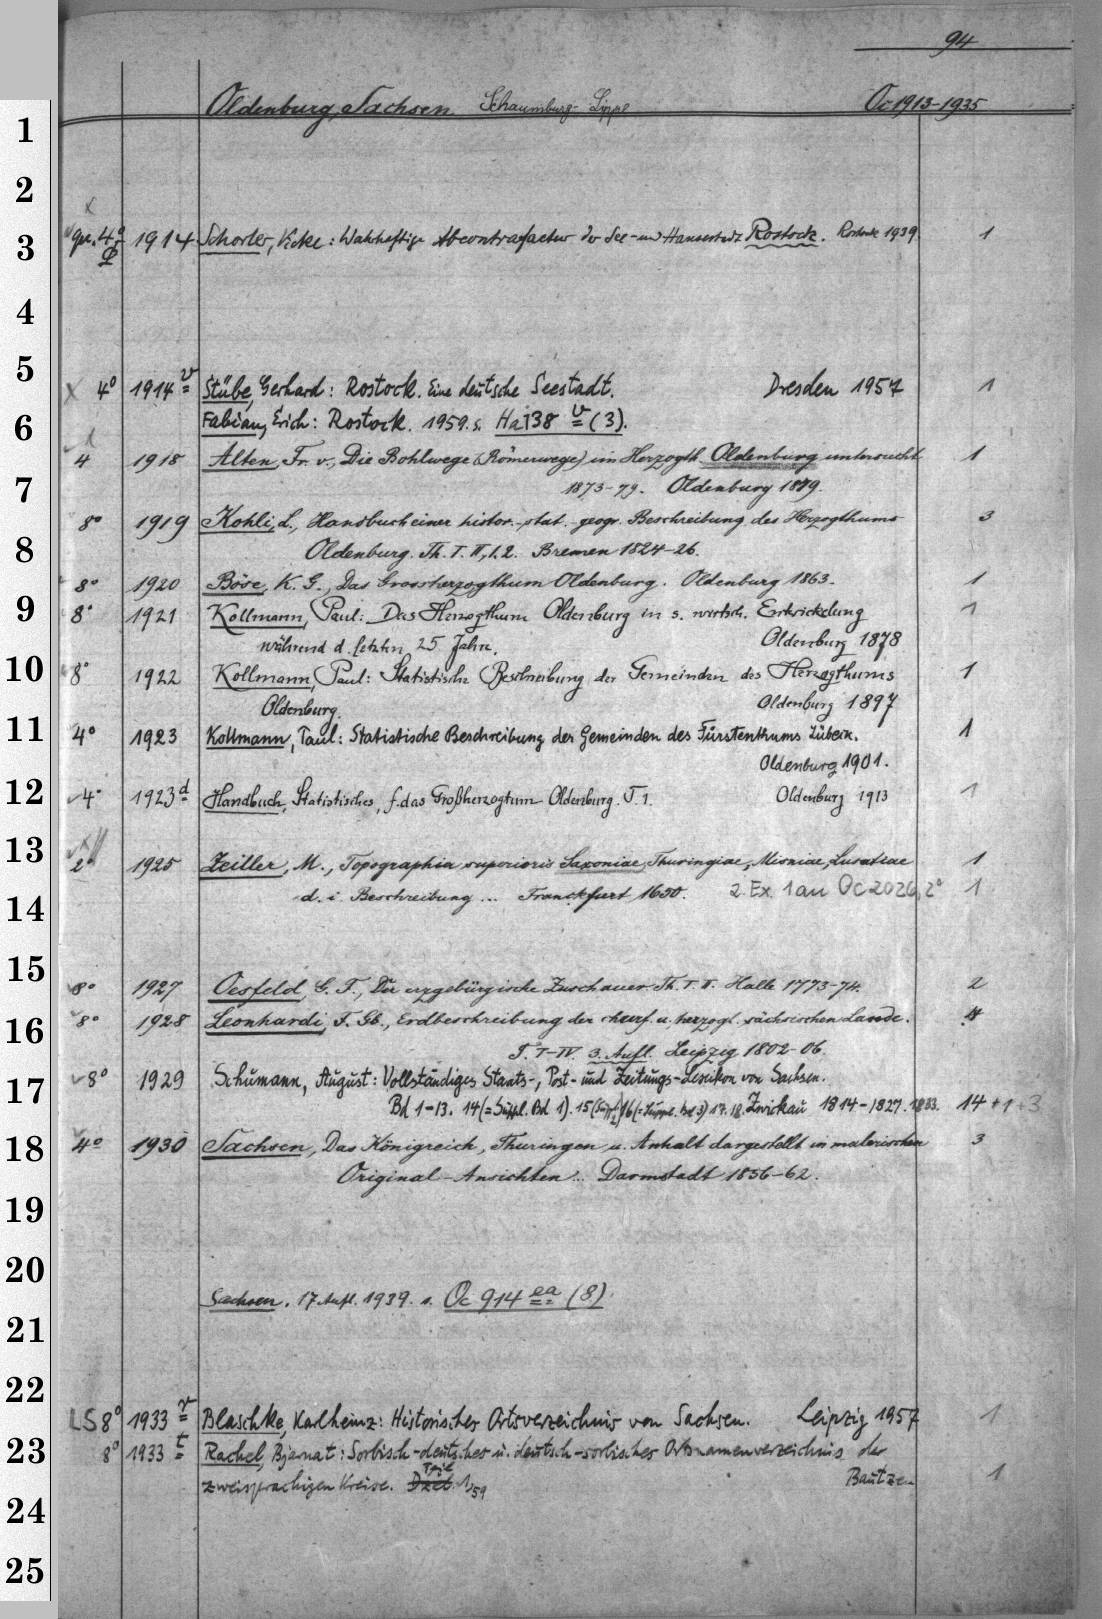 94
Oldenburg, Sachsen. Schaumburg-Lippe Oc 1913-1935
1
2
3 gr. 4° 1914 Schorler, Vicke: Wahrhaftige Abcontrafactur der See- und Hansestadt Rostock. Rostock 1939. 1
4
5 4° 1914 v Stübe, Gerhard: Rostock. Eine deutsche Seestadt. Dresden 1957 1
6 Fabian, Erich: Rostock. 1959. s. Ha 138 v (3).
4 1918 Alten, Fr. v., Die Bohlwege (Römerwege) im Herzogth. Oldenburg untersucht 1
7 1873-79. Oldenburg 1879.
8° 1919 Kohli, L., Handbuch einer histor.-stat.-geogr. Beschreibung des Herzogthums 3
8 Oldenburg. Th. I. II, 1. 2. Bremen 1824-26.
8° 1920 Böse, K. G., Das Grossherzogthum Oldenburg. Oldenburg 1863. 1
9 8° 1921 Kollmann, Paul: Das Herzogthum Oldenburg in s. wirtsch. Entwickelung 1
während d. letzten 25 Jahre. Oldenburg 1878
10 8° 1922 Kollmann, Paul: Statistische Beschreibung der Gemeinden des Herzogthums 1
Oldenburg. Oldenburg 1897
11 4° 1923 Kollmann, Paul: Statistische Beschreibung der Gemeinden des Fürstenthums Lübeck. 1
Oldenburg 1901.
12 4° 1923 d Handbuch, Statistisches, f. das Großherzogtum Oldenburg. T 1. Oldenburg 1913 1
13 2° 1925 Zeiller, M., Topographia superioris Saxoniae, Thuringiae, Misniae, Lusatiae 1
14 d. i. Beschreibung ... Franckfurt 1650. 2. Ex. 1 an Oc 2026, 2° 1
15 8° 1927 Oesfeld, G. F., Der erzgebürgische Zuschauer. Th. I. II. Halle 1773-74. 2
16 8° 1928 Leonhardi, F. Gb., Erdbeschreibung der churf. u. herzogl. sächsischen Lande. 4
T. I-IV. 3. Aufl. Leipzig 1802-06.
17 8° 1929 Schumann, August: Vollständiges Staats-, Post- und Zeitungs-Lexikon von Sachsen.
Bd 1-13. 14 (=Suppl. Bd 1). 15 (Suppl. 2) 16 (=Suppl. Bd 3) 17. 18. Zwickau 1814-1827. 1833. 14 + 1 + 3
18 4° 1930 Sachsen, Das Königreich, Thüringen u. Anhalt dargestellt in malerischen 3
Original-Ansichten... Darmstadt 1856-62.
19
20 Sachsen. 17 Aufl. 1939. s. Oc 914 ea (8).
21
22 LS 8° 1933 r Blaschke, Karlheinz: Historisches Ortsverzeichnis von Sachsen. Leipzig 1957 1
23 8° 1933 t Rachel, Bjarnat: Sorbisch-deutsches u. deutsch-sorbisches Ortsnamenverzeichnis der
zweisprachigen Kreise. Teil 1/59 Bautzen 1
24
25